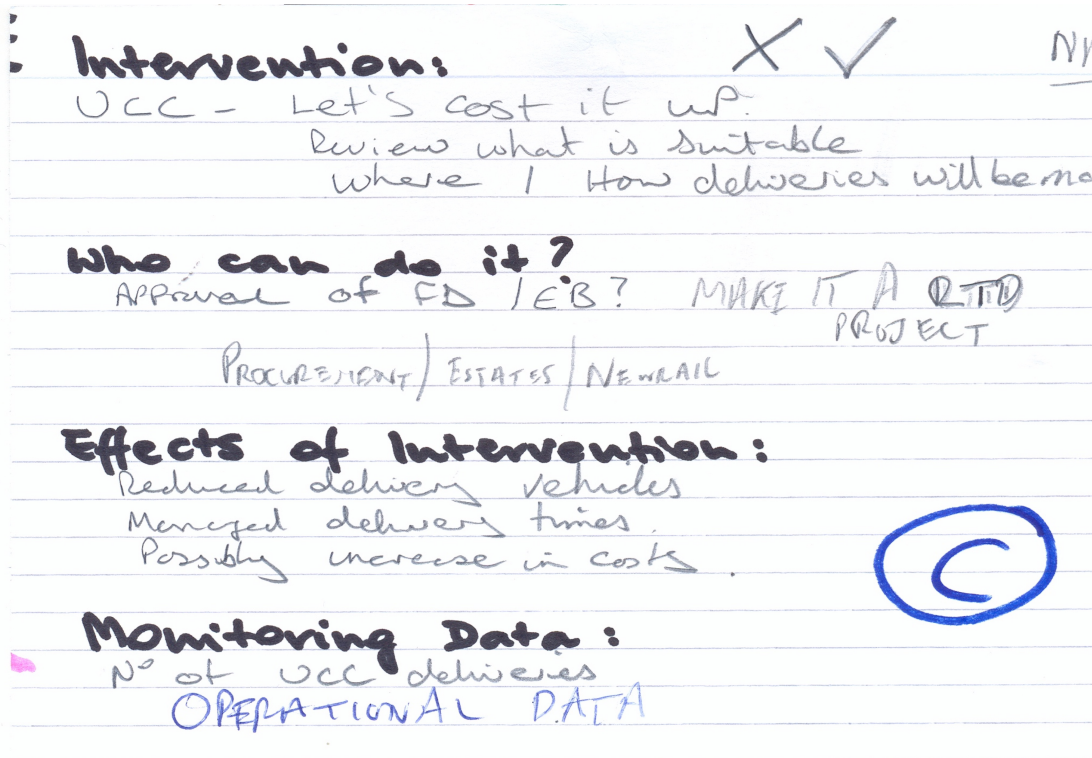 Intervention:
UCC - Let's cost it up.
Review what is suitable
where / How deliveries will be
Who can do it?
Approval of FD / EB? MAKE IT A RTD
PROJECT
PROCUREMENT / ESTATES / NEWRAIL
Effects of Intervention:
Reduced delivery vehicles
Managed delivery times.
Possibly increase in costs.
C
Monitoring Data:
Nº of UCC deliveries
OPERATIONAL DATA